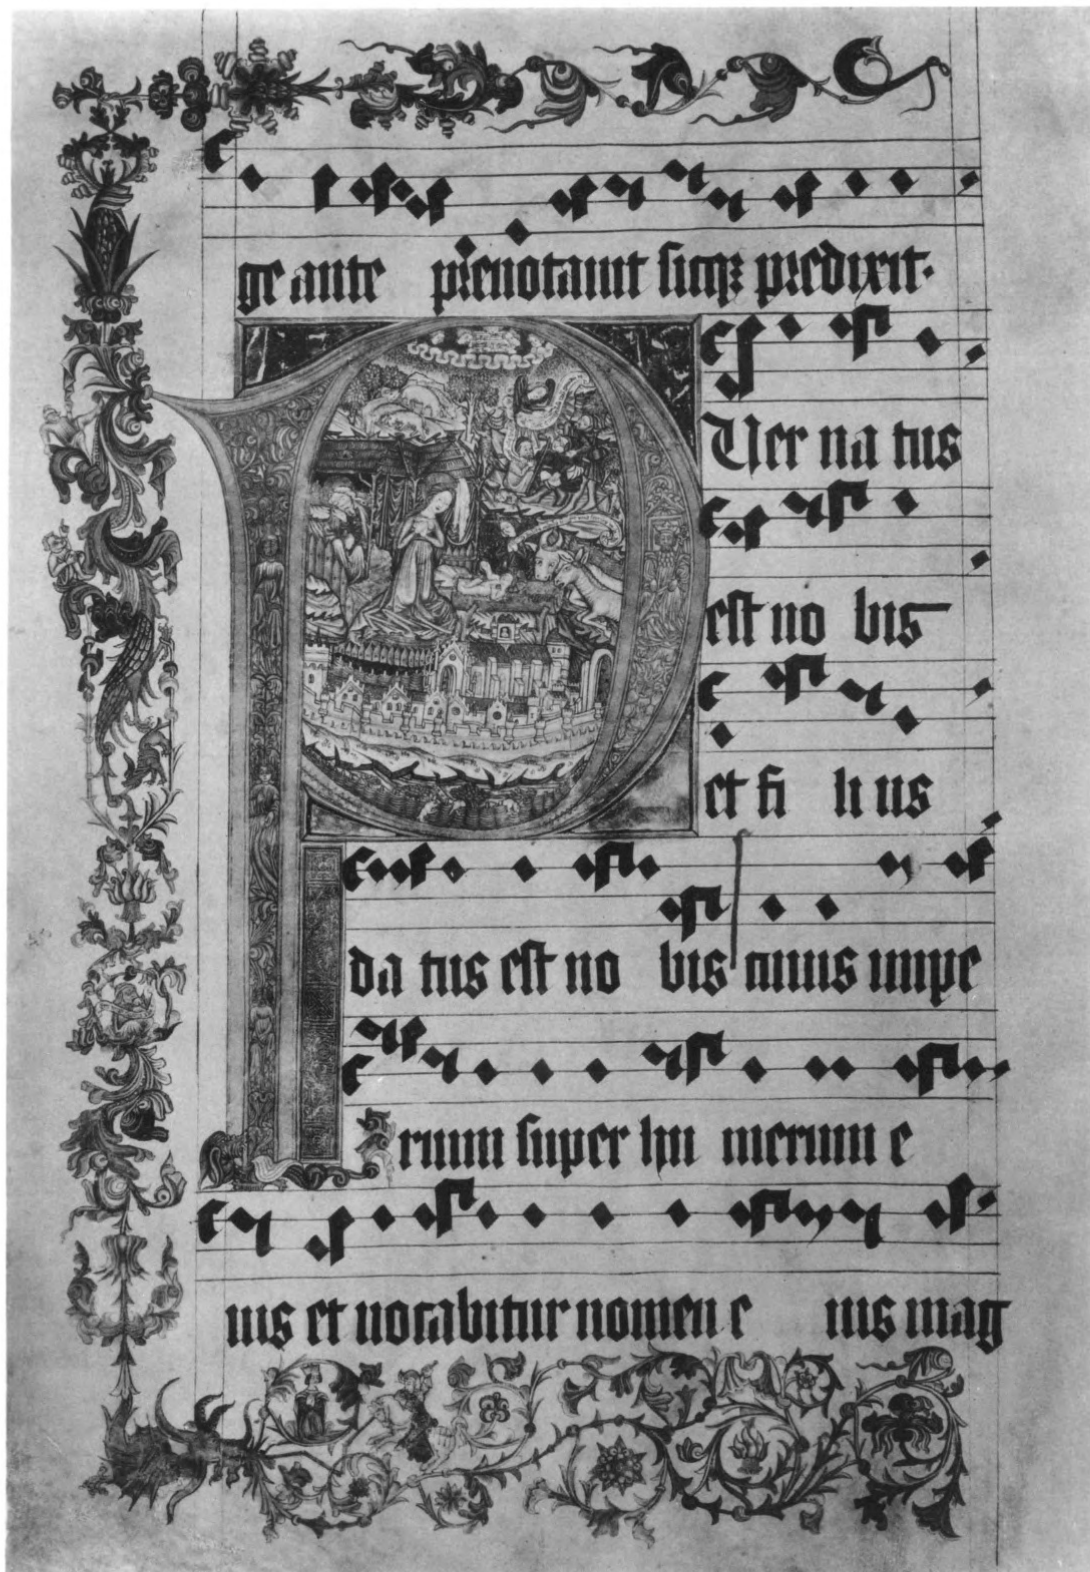 ge ante prenotauit sicqz predixit.
PUer na tus
est no bis
et fi li us
da tus est no bis cuius impe
rium super hu merum e
ius et uocabitur nomen e ius mag